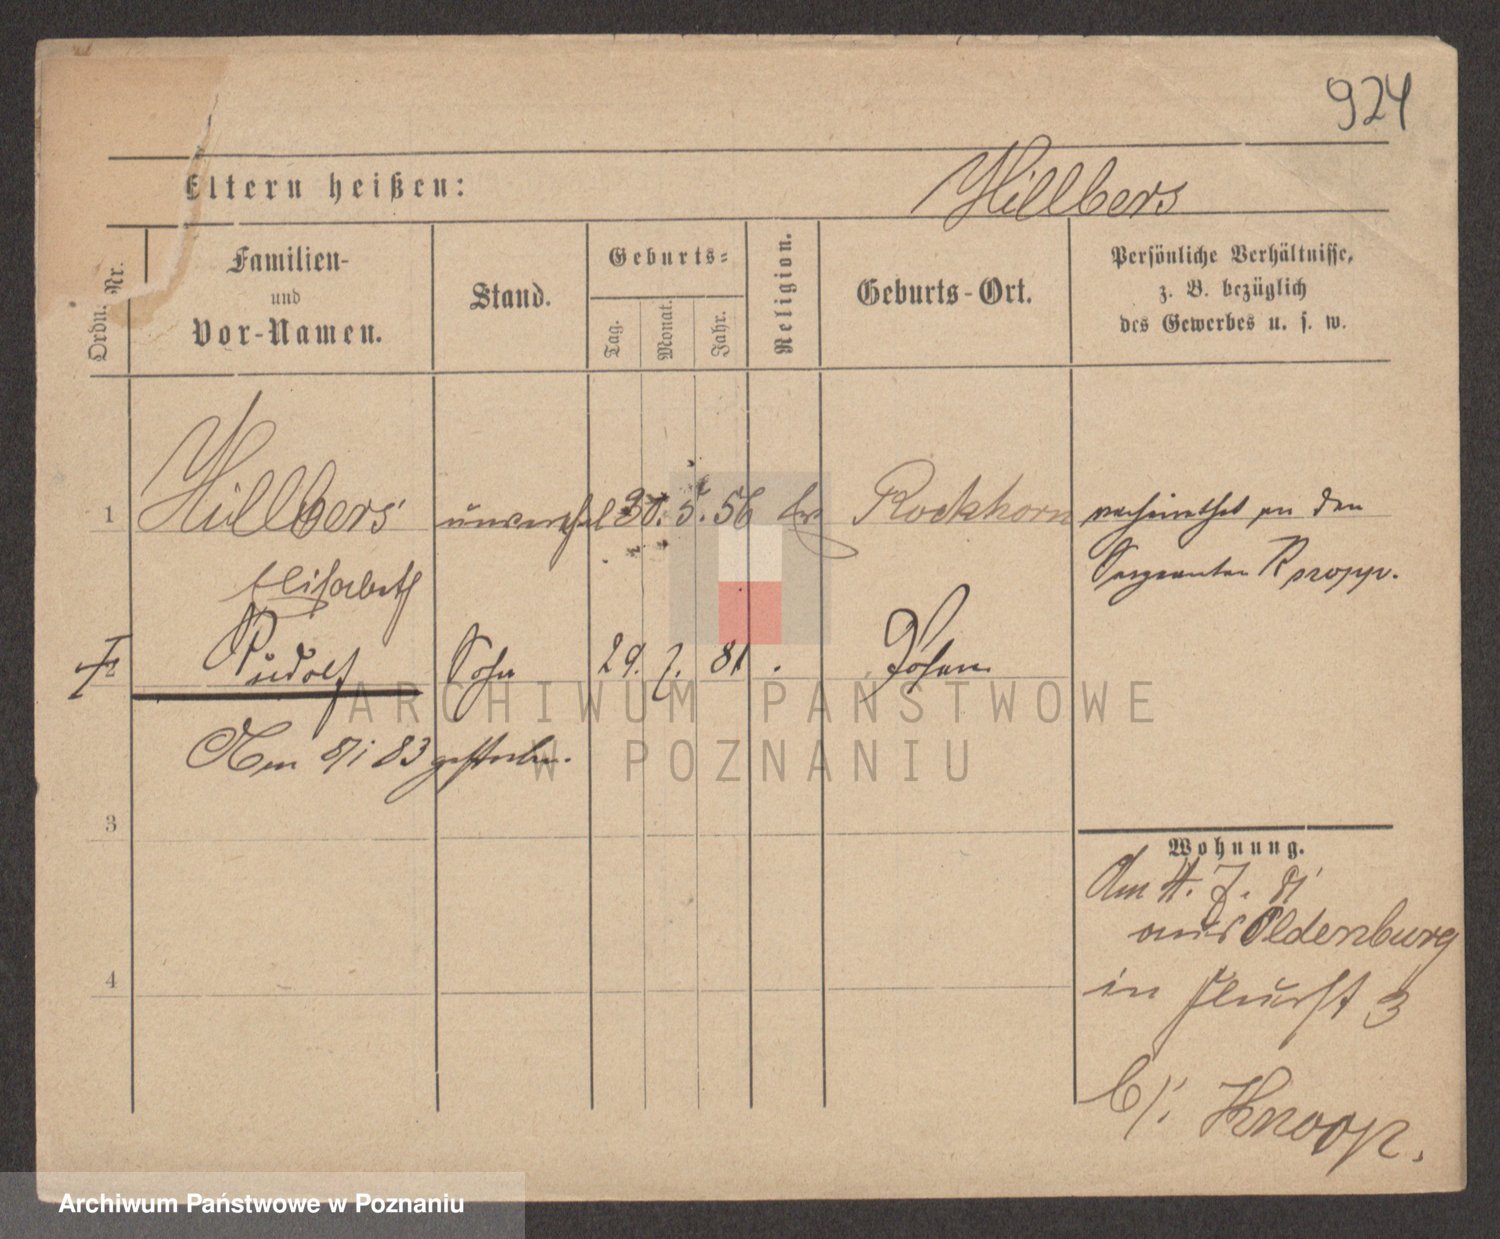 924
Eltern heißen:
Hillbers
Ordn. Nr.
Familien-
und
Vor-Namen.
Stand.
Geburts-
Tag.
Monat.
Jahr.
Religion.
Geburts-Ort.
Persönliche Verhältnisse,
z. B. bezüglich
des Gewerbes u. s. w.
1 Hillbers unverehel 30. 5. 56 Rockhorn verheirathet an den
Elisabeth Sergeanten
2 Rudolf Sohn 29. 7. 81 Posen
Am 8/1 83 gestorben.
3
4
Wohnung.
Am 4. 7. 81
aus Oldenburg
in 3
b/. Knoop.
ARCHIWUM PAŃSTWOWE
W POZNANIU
Archiwum Państwowe w Poznaniu